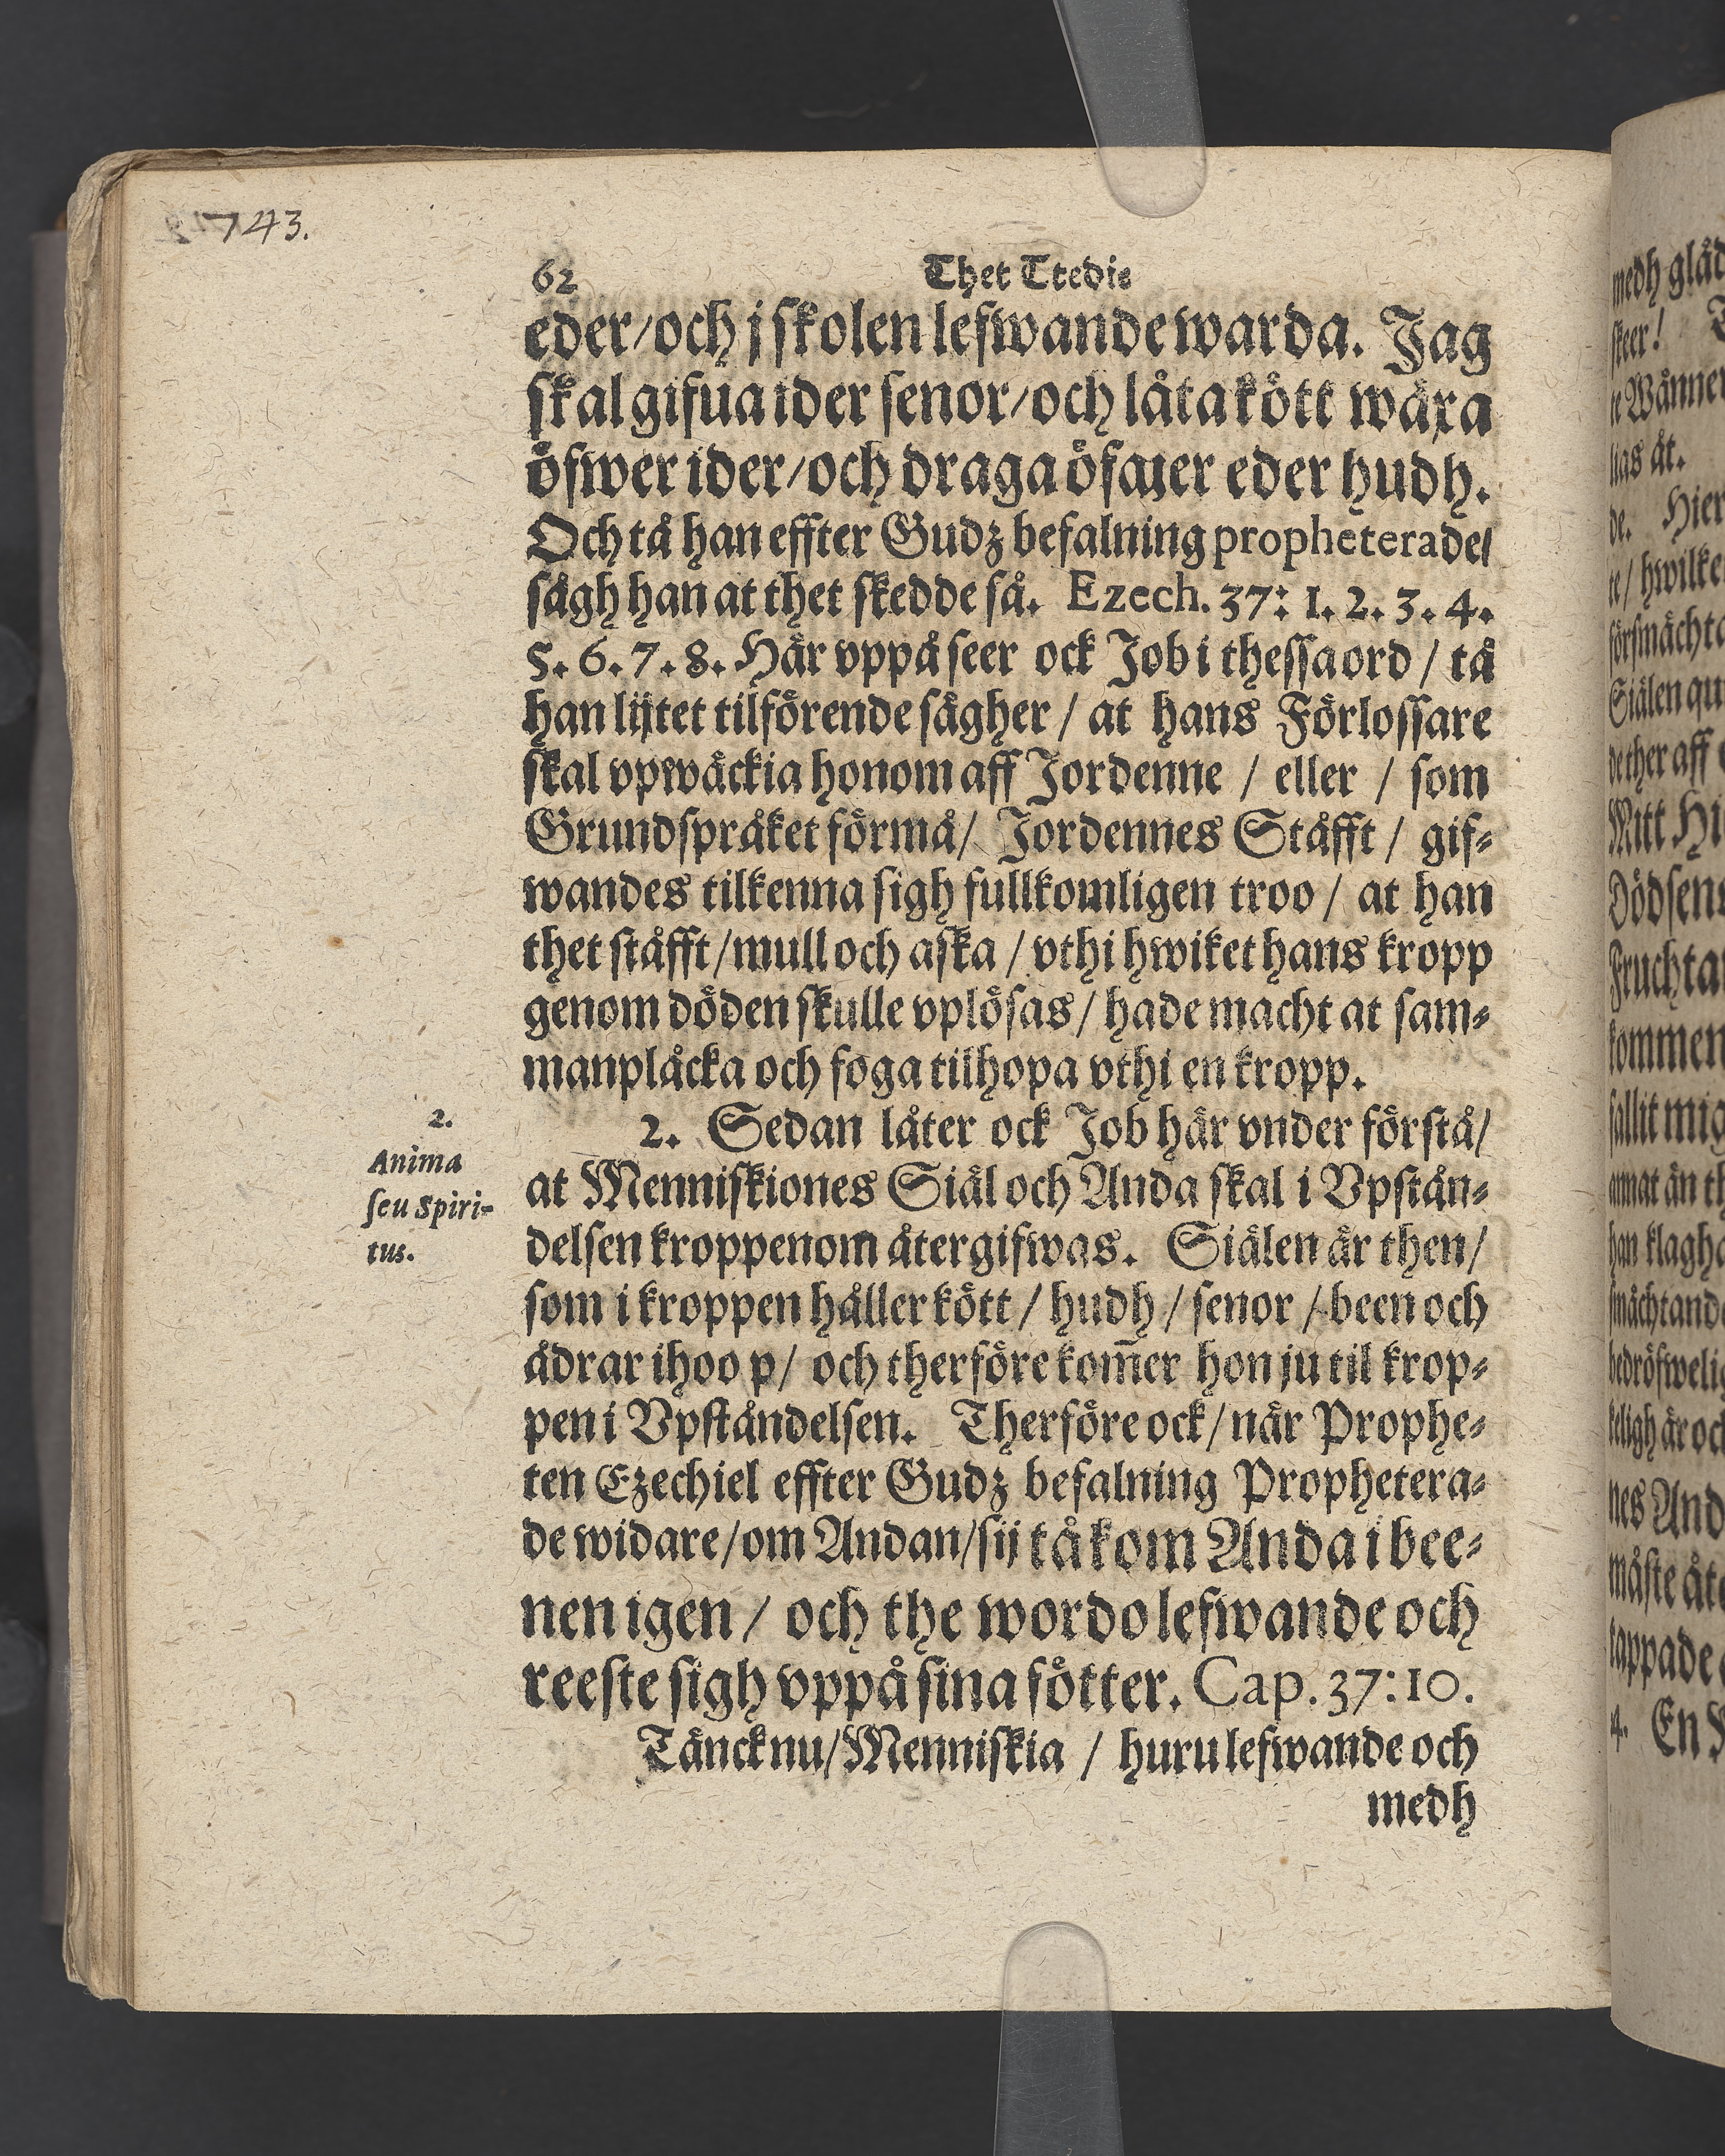 743.
62 Thet Ttedie
eder/och j skolen lefwande warda. Jag
skal gifua ider senor/och låta kött wäxa
öfwer ider/och draga öfwer eder hudh.
Och tå han effter Gudz befalning propheterade/
sågh han at thet skedde så. Ezech. 37: 1. 2. 3. 4.
5. 6. 7. 8. Här vppå seer ock Job i thessa ord / tå
han lijtet tilförende sägher / at hans Förlossare
skal vpwäckia honom aff Jordenne / eller / som
Grundspråket förmå/ Jordennes Ståfft / gif-
wandes tilkenna sigh fullkomligen troo / at han
thet ståfft/mull och aska / vthi hwiket hans kropp
genom döden skulle vplösas / hade macht at sam-
manplåcka och foga tilhopa vthi en kropp.
2. Sedan låter ock Job här vnder förstå/
at Menniskiones Siäl och Anda skal i Vpstån-
delsen kroppenom återgifwas. Siälen är then/
som i kroppen håller kött / hudh / senor / been och
ådrar ihoo p/ och therföre kom̃er hon ju til krop-
pen i Vpståndelsen. Therföre ock/när Prophe-
ten Ezechiel effter Gudz befalning Prophetera-
de widare/om Andan/sij tå kom Anda i bee-
nen igen / och the wordo lefwande och
reeste sigh vppå sina fötter. Cap. 37:10.
Tänck nu/Menniskia / huru lefwande och
medh
2.
Anima
seu Spiri-
tus.